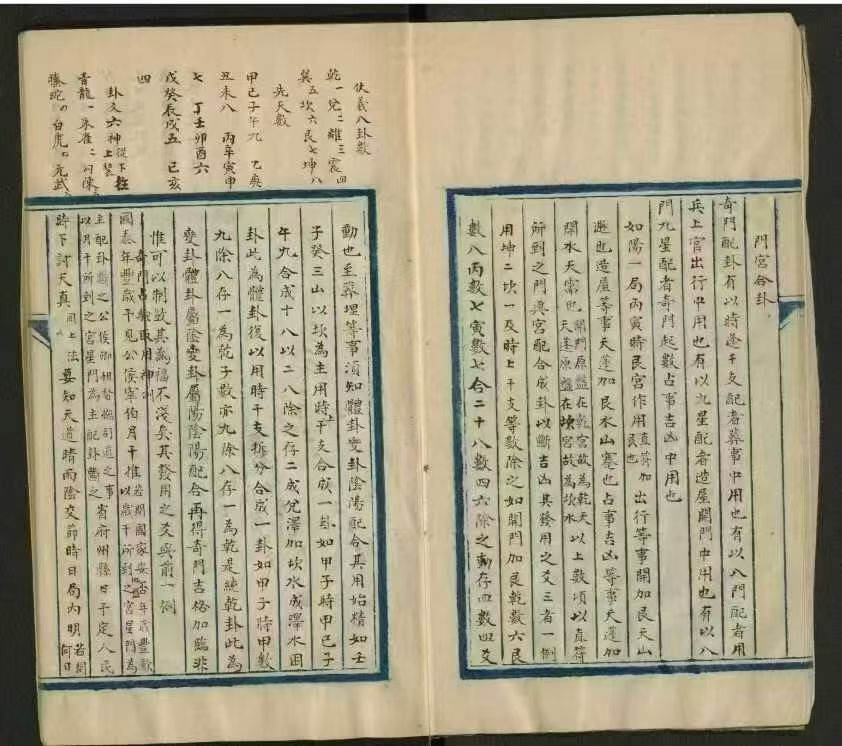 門宮合卦
奇門配卦有以時逢干支配者葬事中用也有以八門配者用
兵上官出行中用也有以九星配者造屋開門中用也有以八
門九星配者奇門起數占事吉凶中用也
如陽一局丙寅時艮宮作用直符加艮也出行等事開加艮天山
遯也造屋等事天蓬加艮水山蹇也占事吉凶等事天蓬加
開水天需也開門原盤在乾宮故為乾天天蓬原盤在坎宮故為坎水以上數項以直符
所到之門與宮配合成卦以斷吉凶其發用之爻三者一例
用坤二坎一及時上干支等數除之如開門加艮乾數六艮
數八丙數七寅數七合二十八數四六除之動存四數四爻
動也至葬埋等事須知體卦變卦陰陽配合其用始精如壬
子癸三山以坎為主用時上干支合成一卦如甲子時甲己子
午九合成十八以二八除之存二成兌澤加坎水成澤水困
卦此為體卦後以用時干支拆分合成一卦如甲子時甲數
九除八存一為乾子數亦九除八存一為乾是純乾卦此為
變卦體卦屬陰變卦屬陽陰陽配合再得奇門吉格加臨非
惟可以制故其為福不淺矣其發用之爻與前一例
奇門占驗取用神例
國泰年豐歲干見公侯宰伯月干推若問國家安否年歲豐歉以歲干所到之宮星門為
主配卦斷之公侯卿相督撫司道之事以月干所到之宮星門為主配卦斷之省府州縣日干定人民
時下訂天真同上法要知天道晴雨陰交節時日局內明若問何日
伏羲八卦數
乾一兌二離三震四
巽五坎六艮七坤八
先天數
甲己子午九 乙庚
丑未八 丙辛寅申
七 丁壬卯酉六
戊癸辰戌五 己亥
四
卦爻六神從下裝上
青龍一朱雀二勾陳三
螣蛇四白虎五元武